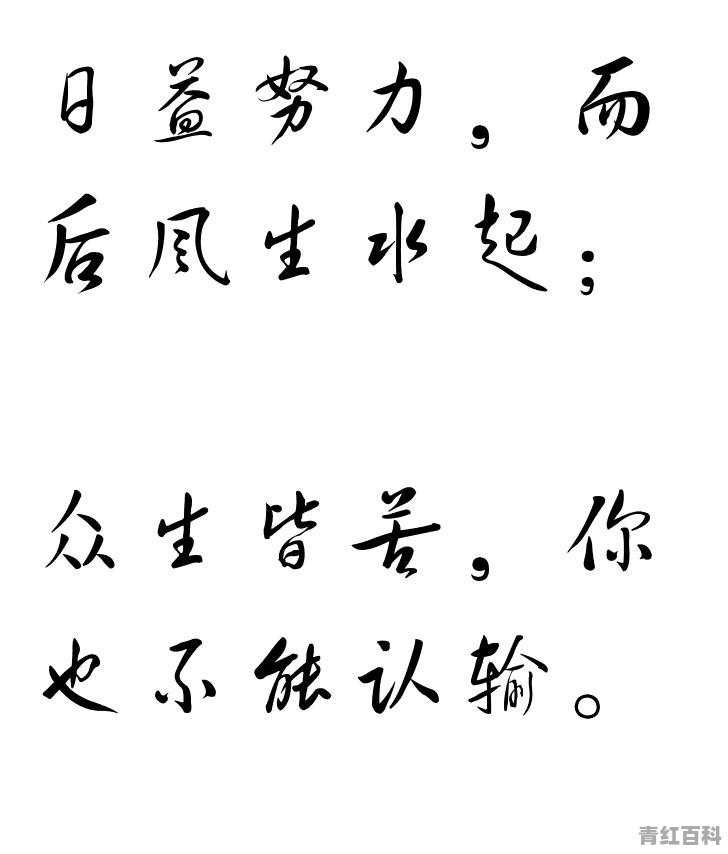 日益努力，而
后风生水起；
众生皆苦，你
也不能认输。
青红百科